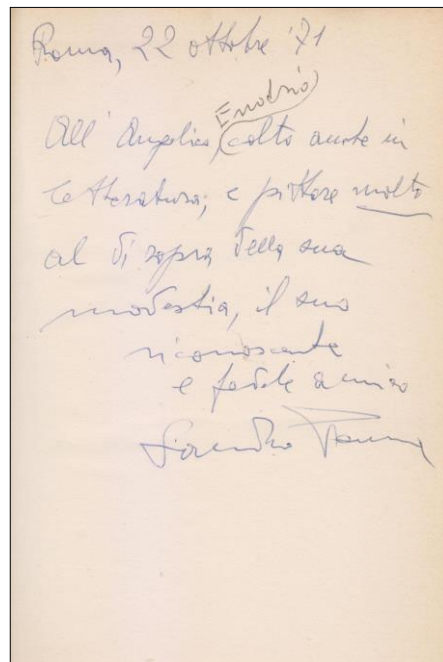 Roma, 22 ottobre '71
All' Angelica, colto anche in
letteratura; e pittore molto
al di sopra della sua
modestia, il suo
riconoscente
e fedele amico
Sandro Penna